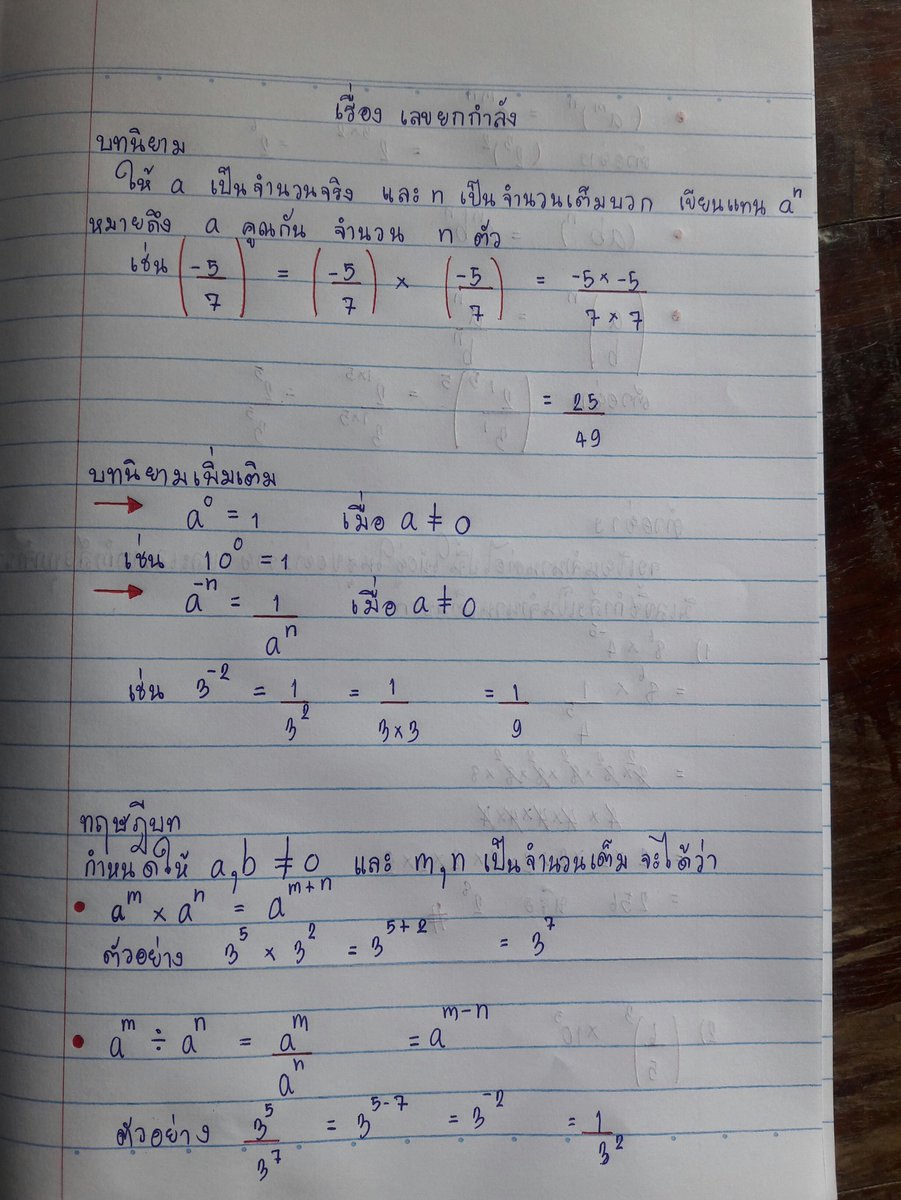 เรื่อง เลขยกกำลัง
บทนิยาม
ให้ a เป็นจำนวนจริง และ n เป็นจำนวนเต็มบวก เขียนแทน aⁿ
หมายถึง a คูณกัน จำนวน n ตัว
เช่น (-5/7) = (-5/7) × (-5/7) = -5 × -5 / 7 × 7
= 25/49
บทนิยามเพิ่มเติม
→ a⁰ = 1 เมื่อ a ≠ 0
เช่น 10⁰ = 1
→ a⁻ⁿ = 1/aⁿ เมื่อ a ≠ 0
เช่น 3⁻² = 1/3² = 1/3×3 = 1/9
ทฤษฎีบท
กำหนดให้ a,b ≠ 0 และ m,n เป็นจำนวนเต็ม จะได้ว่า
• aᵐ × aⁿ = aᵐ⁺ⁿ
ตัวอย่าง 3⁵ × 3² = 3⁵⁺² = 3⁷
• aᵐ ÷ aⁿ = aᵐ/aⁿ = aᵐ⁻ⁿ
ตัวอย่าง 3⁵/3⁷ = 3⁵⁻⁷ = 3⁻² = 1/3²